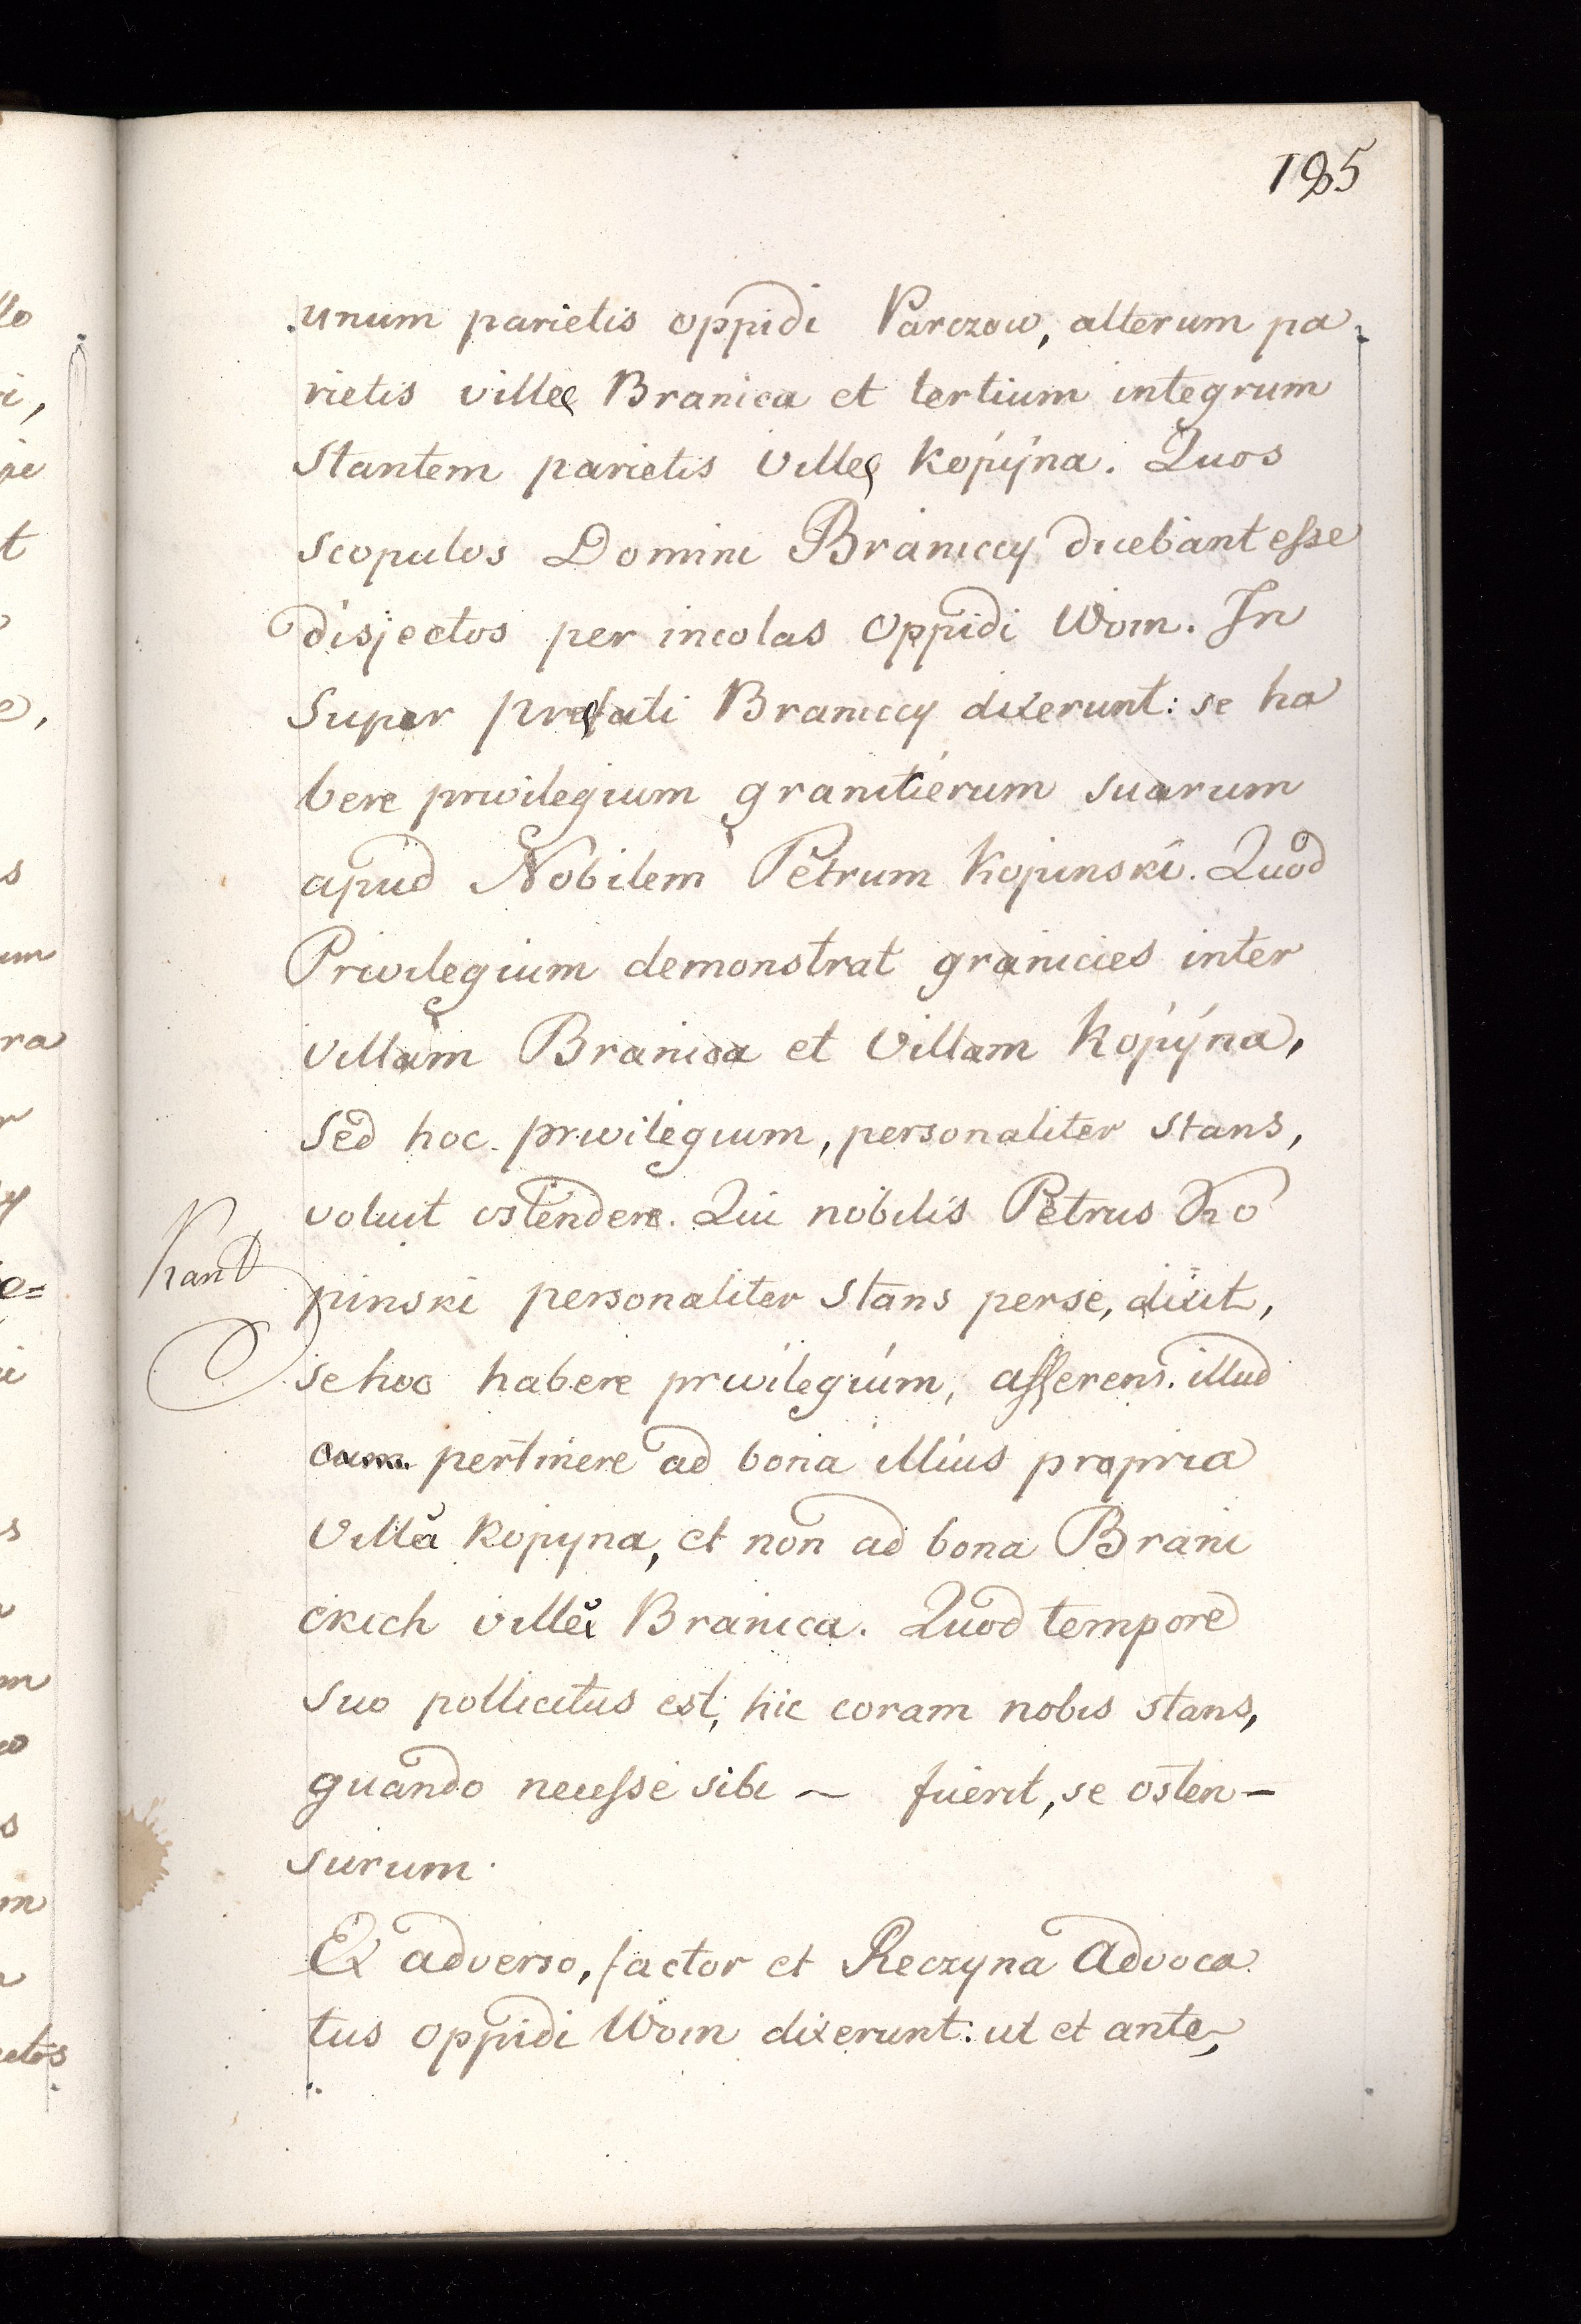 185
unum parietis oppidi Parczow, alterum pa
rietis villę Branica et tertium integrum
Stantem parietis Villę Kopýna. Quos
scopulos Domini Braniccy dicebant esse
disjectos per incolas Oppidi Woin. In
Super pręfati Braniccy dixerunt: se ha
bere privilegium granitierum suarum
apud Nobilem Petrum Kopinski. Quod
Privilegium demonstrat granicies inter
villam Branica et Villam Kopýna,
Sed hoc privilegium, personaliter stans,
voluit ostendere. Qui nobilis Petrus Ko
pinski personaliter Stans perse, dixit,
se hoc habere privilegium, asserens illud
pertinere ad bona illius propria
Villa Kopyna, et non ad bona Brani
ckich villa Branica. Quod tempore
Suo pollicitus est, hic coram nobis stans,
quando necesse sibi ~ fuerit, se osten-
surum.
Ex adverso, factor et Reczyna Advoca
tus oppidi Woin dixerunt: ut et ante,